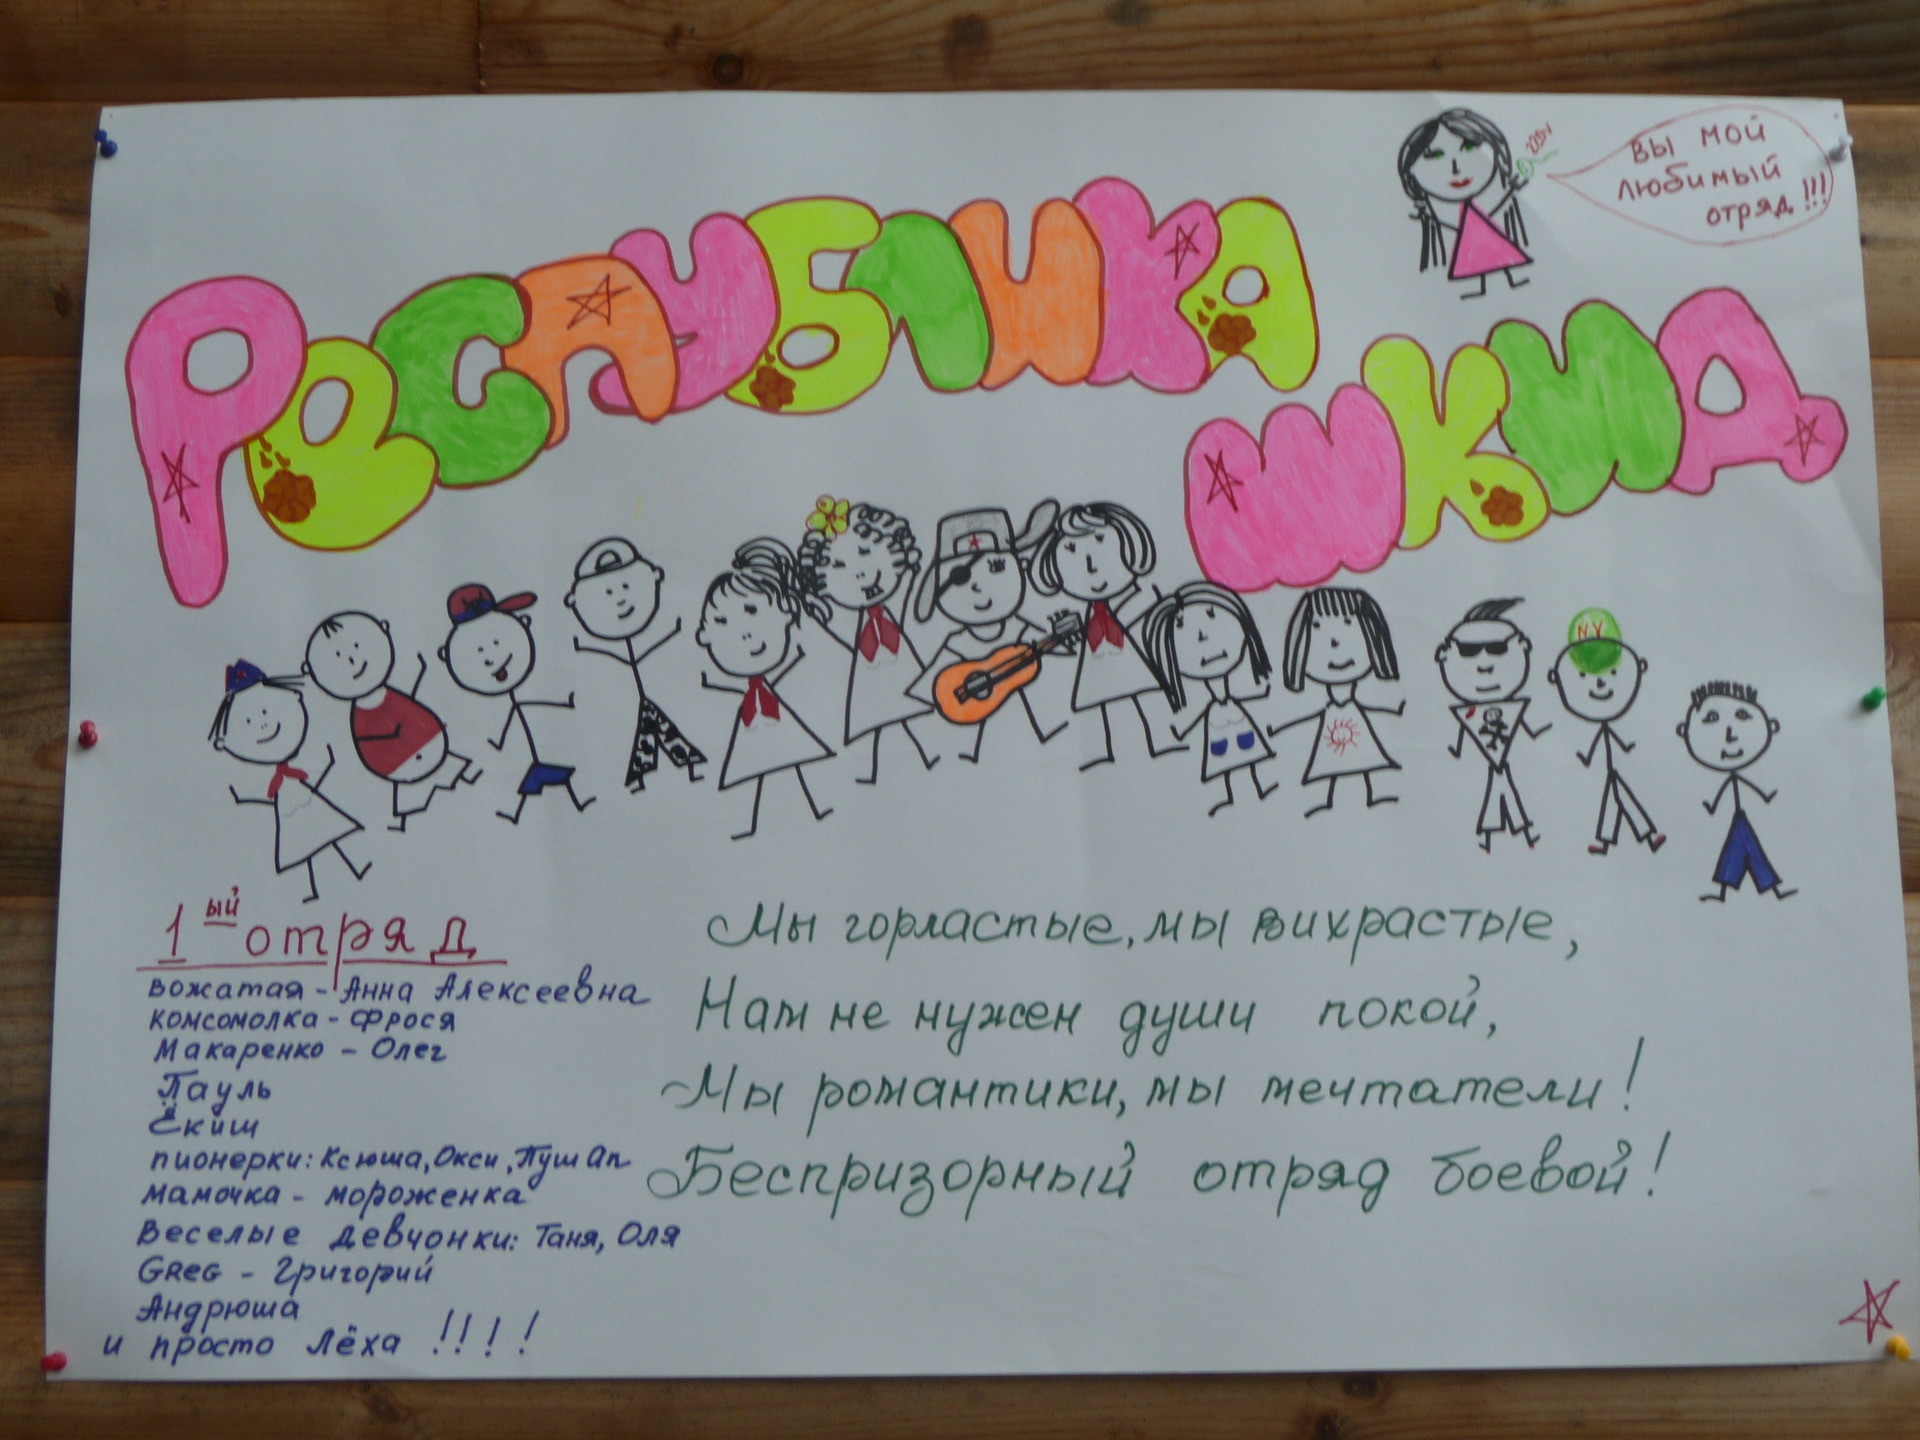 РЕСПУБЛИКА
ШКИД
220V
ВЫ МОЙ
ЛЮБИМЫЙ
ОТРЯД!!!
NY
1ый отряд
Вожатая - Анна Алексеевна
Комсомолка - Фрося
Макаренко - Олег
Пауль
Ёкиш
пионерки: Ксюша, Окси, Пуш Ап
Мамочка - мороженка
Веселые девчонки: Таня, Оля
GReG - Григорий
Андрюша
и просто Лёха !!!!
Мы горластые, мы вихрастые,
Нам не нужен души покой,
Мы романтики, мы мечтатели!
Беспризорный отряд боевой!